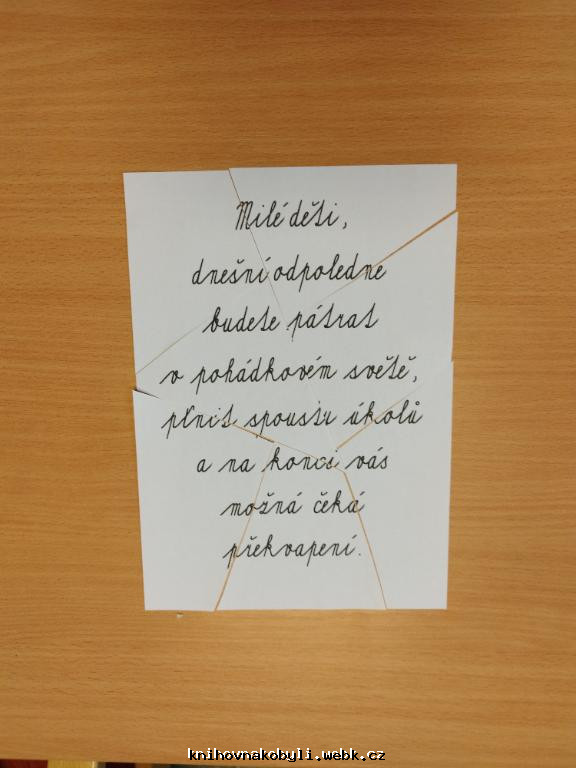 Milé děti,
dnešní odpoledne
budete pátrat
v pohádkovém světě,
plnit spoustu úkolů
a na konci vás
možná čeká
překvapení.
knihovnakobyli.webk.cz